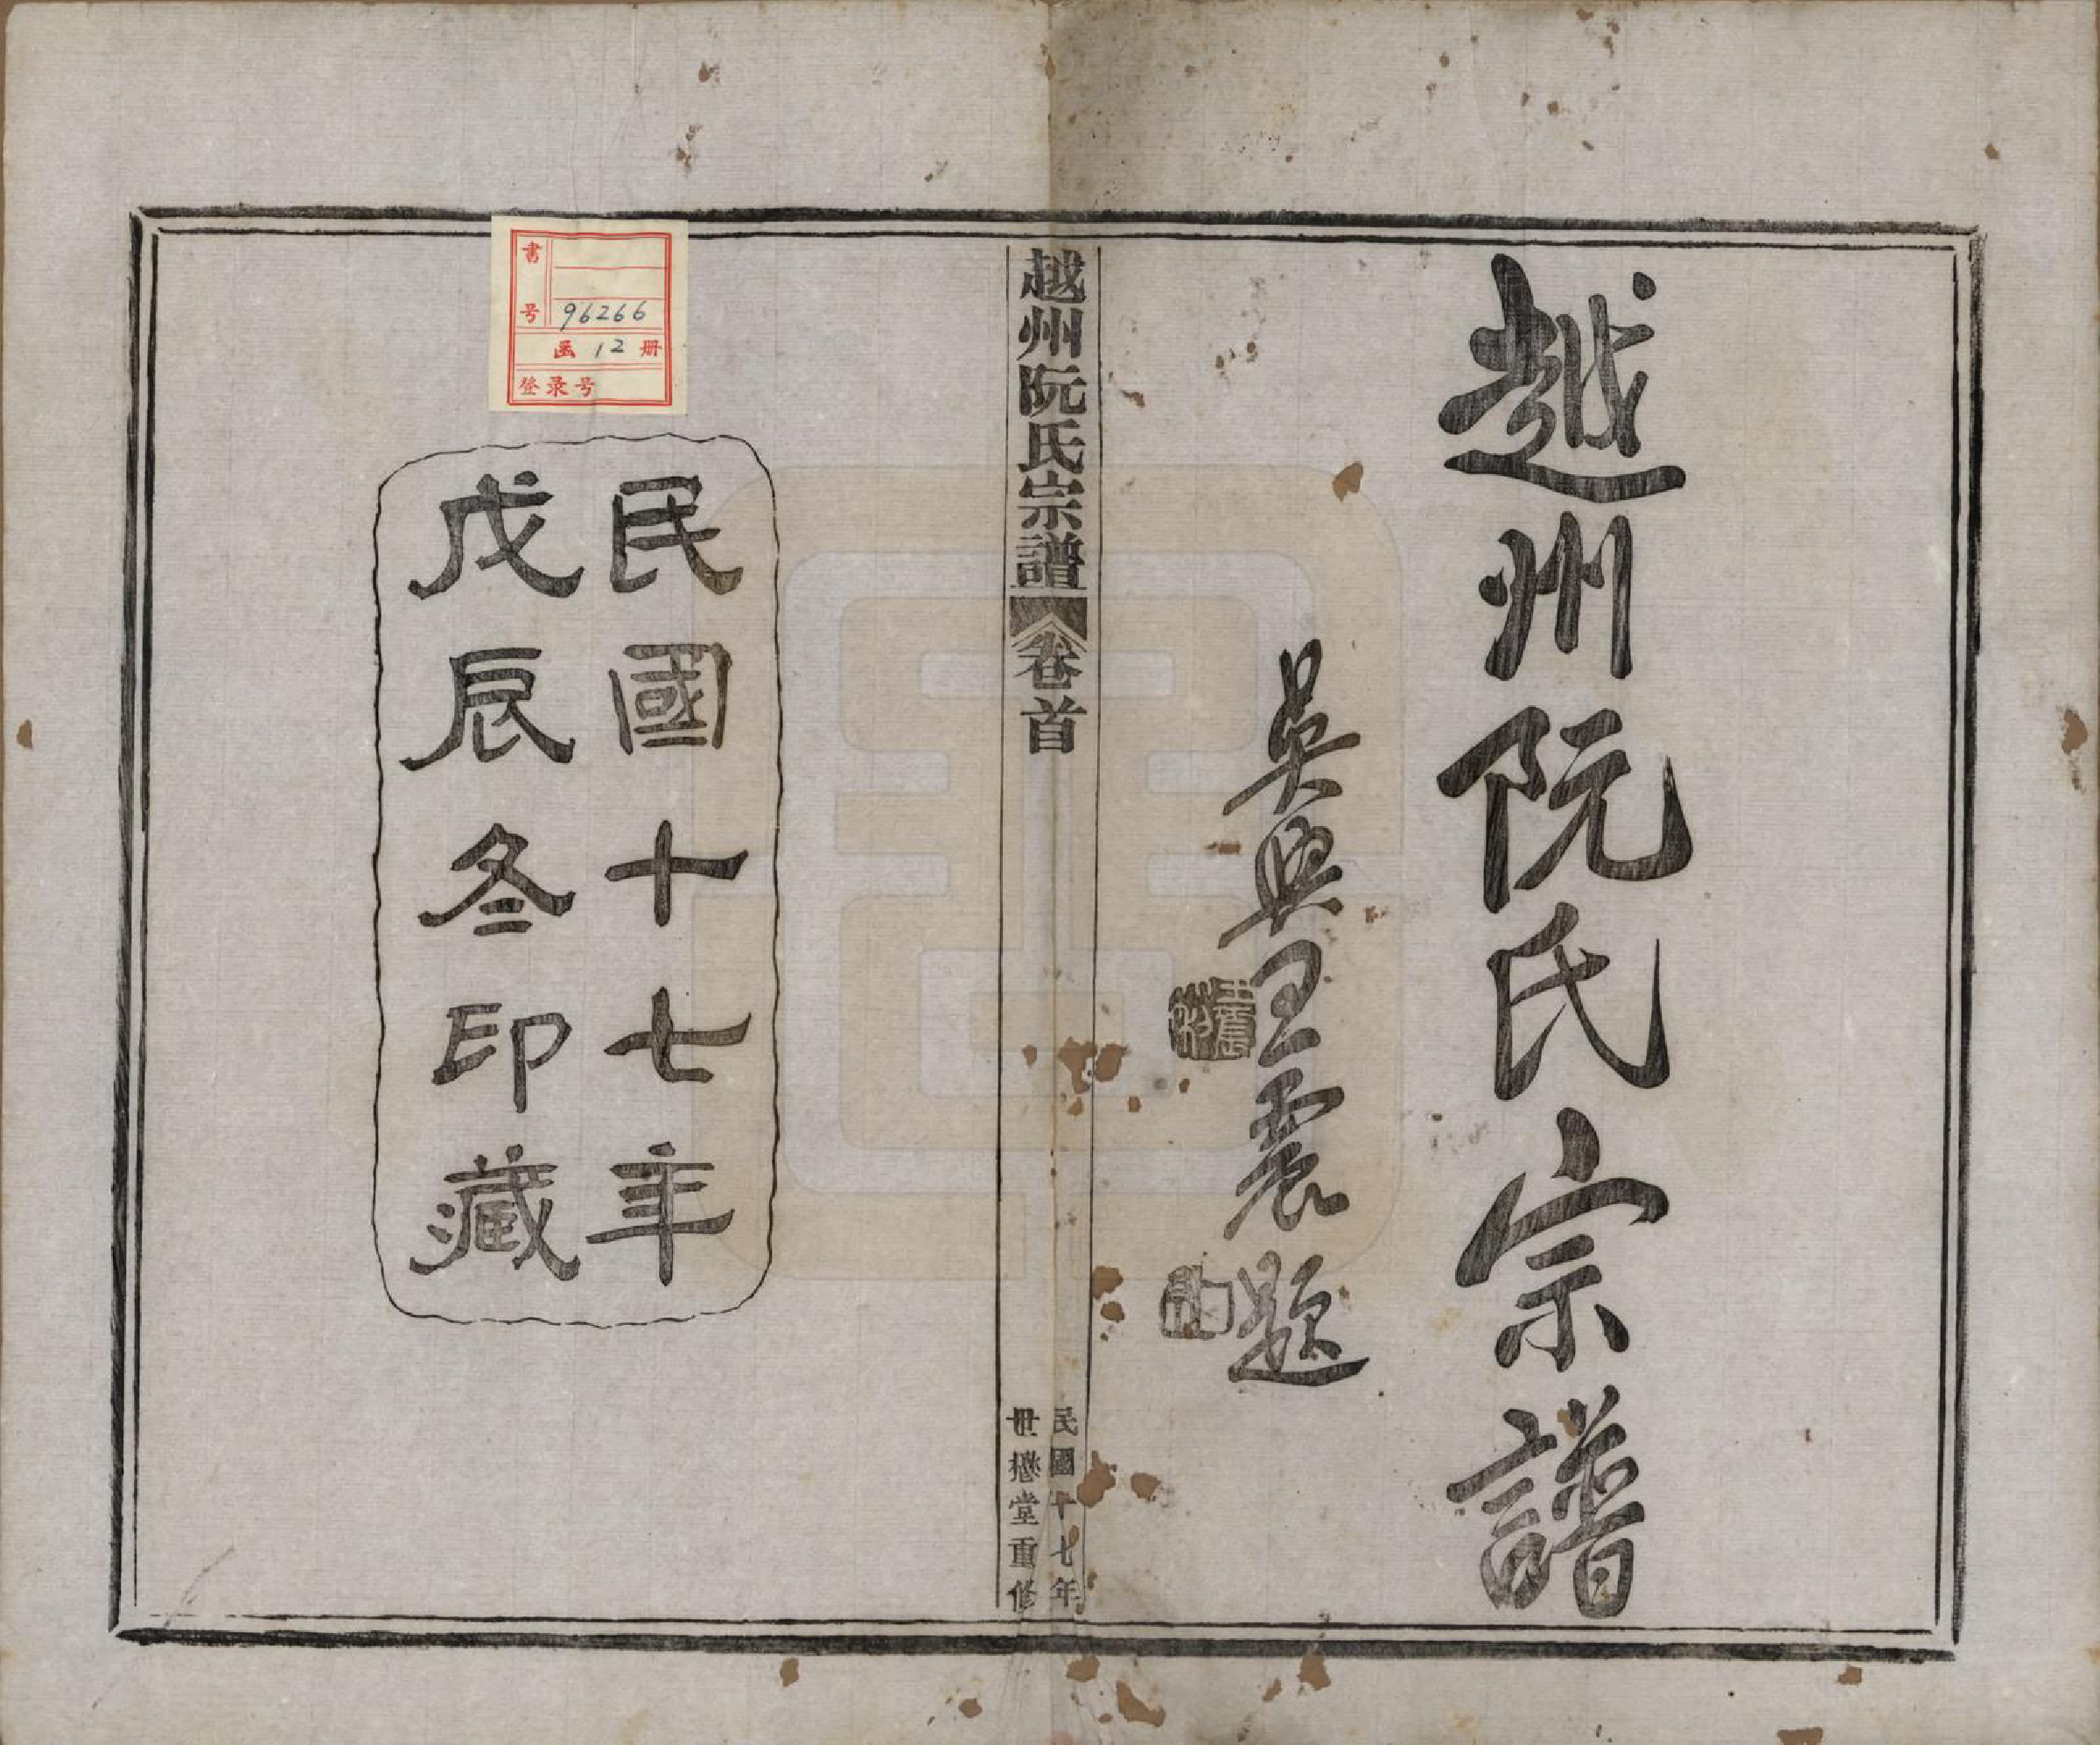 越州阮氏宗譜
吳興王震題
王震
越州阮氏宗譜
卷首
民國十七年
世懋堂重修
民國十七年
戊辰冬印藏
書号 96266
函 12 册
登录号